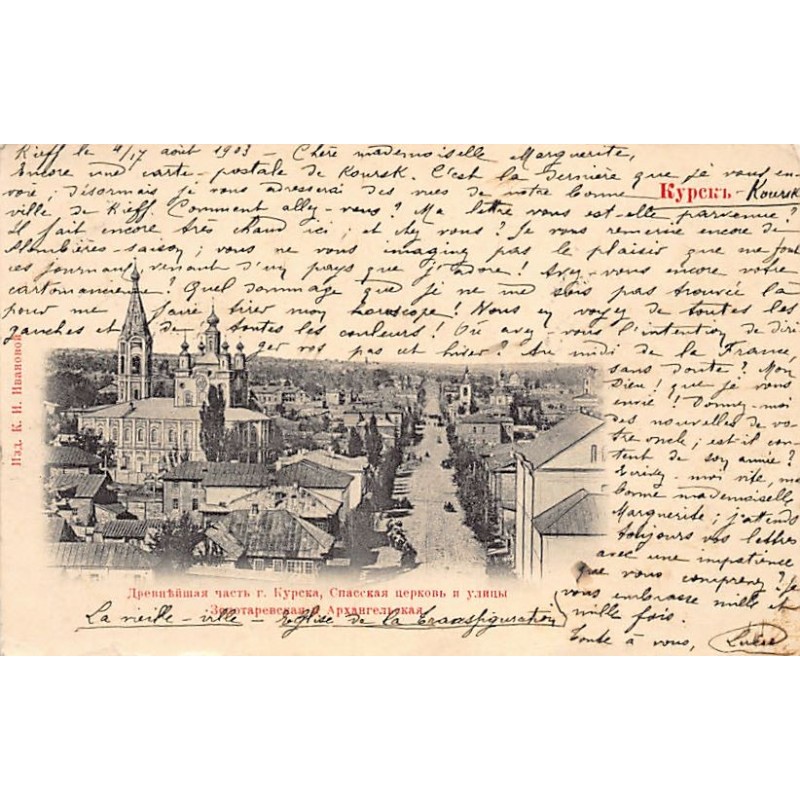 Kieff le 4/17 août 1903 – Chère mademoiselle Marguerite,
Encore une carte-postale de Koursk. C'est la dernière que je vous en-
voie; désormais je vous adresserai des vues de notre bonne
Курскъ - Koursk
ville de Kieff. Comment allez-vous? Ma lettre vous est-elle parvenue?
Il fait encore très chaud ici; et chez vous? Je vous remercie encore de
Plombières-saison; vous ne vous imaginez pas le plaisir que me font
ces journaux venant d'un pays que j'adore! Avez-vous encore votre
cartomancienne? Quel dommage que je ne me sois pas trouvée là
pour me faire tirer mon horoscope! Nous en voyez de toutes les
gauches et de toutes les couleurs! Où avez-vous l'intention de diri
ger vos pas cet hiver? Au midi de la France,
sans doute? Mon
Dieu! que je vous
envie! Donnez-moi
des nouvelles de vo-
tre oncle; est-il con-
tent de son année?
Ecrivez-moi vite, ma
bonne mademoiselle
Marguerite; j'attends
toujours vos lettres
avec une impatience
que vous comprenez? Je
vous embrasse mille et
mille fois.
Toute à vous,
Изд. К. И. Ивановой
Древнѣйшая часть г. Курска, Спасская церковь и улицы
Золотаревская и Архангельская
La vieille-ville – Eglise de la Transfiguration